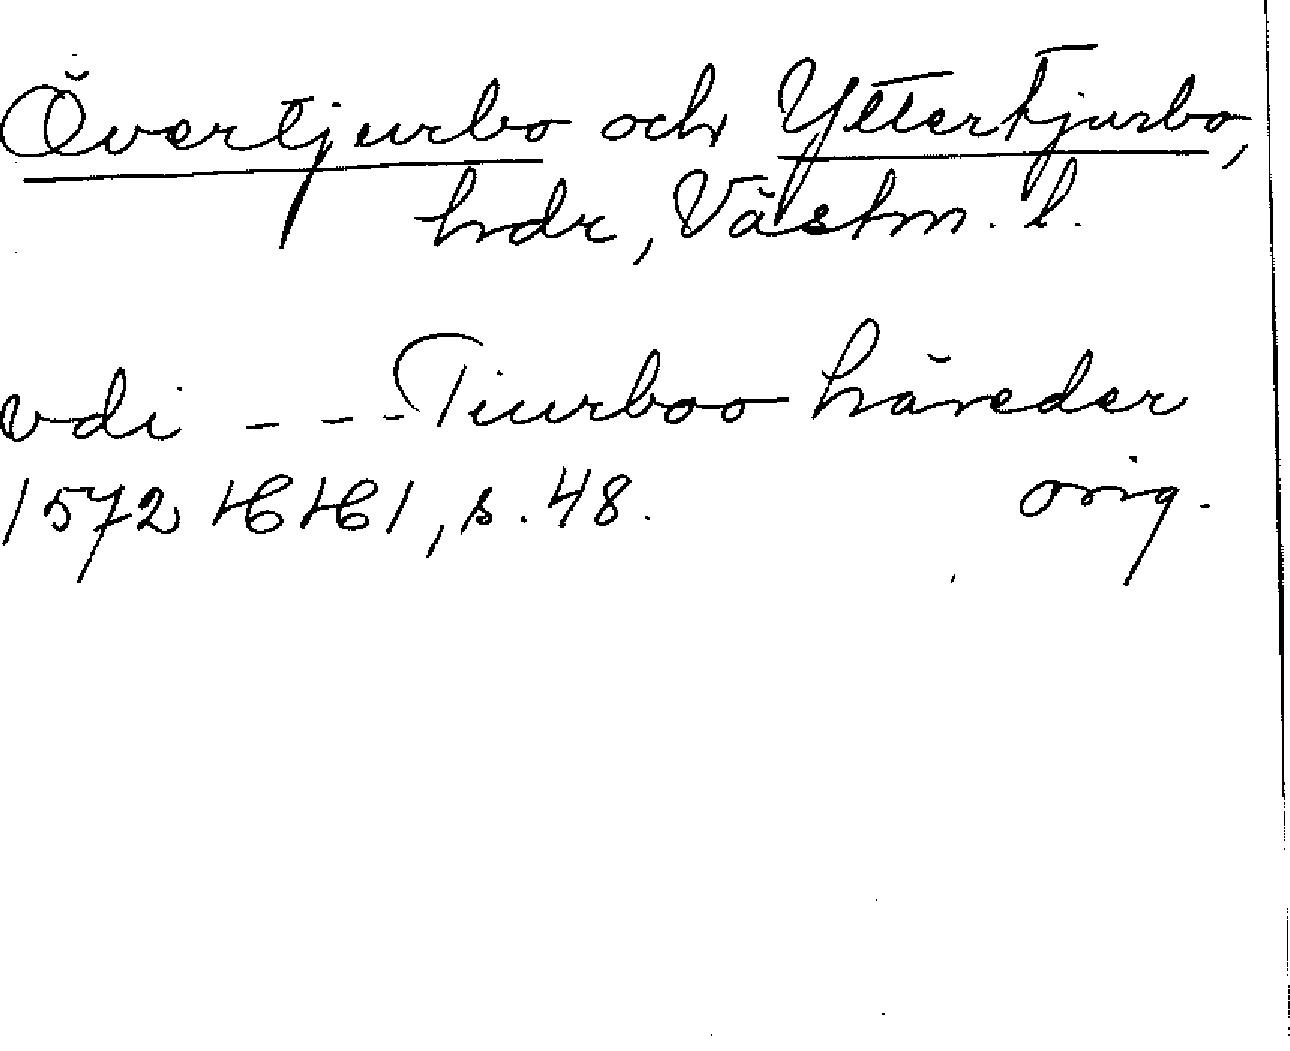 Övertjurbo och Yttertjurbo,
hdr, Västm. l.
vdi - - - Tiurboo häreder
1572 HH 1, s. 48. orig.